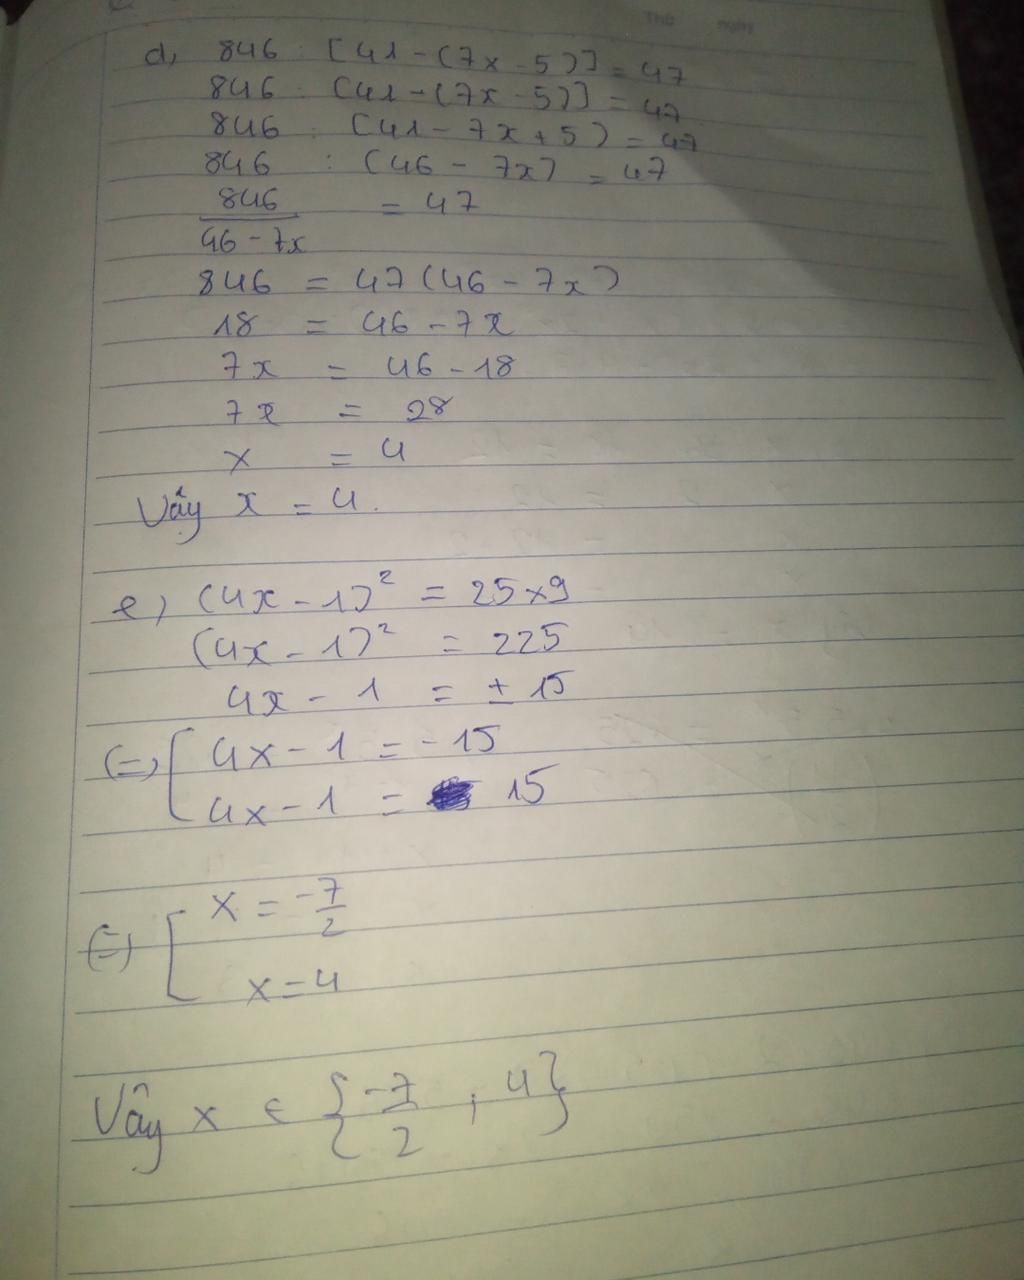 Thứ ngày
d, 846 : [41 - (7x - 5)] = 47
846 : [41 - (7x - 5)] = 47
846 : (41 - 7x + 5) = 47
846 : (46 - 7x) = 47
846/(46 - 7x) = 47
846 = 47 (46 - 7x)
18 = 46 - 7x
7x = 46 - 18
7x = 28
x = 4
Vậy x = 4.
e, (4x - 1)² = 25 x 9
(4x - 1)² = 225
4x - 1 = ± 15
(=) [ 4x - 1 = -15
4x - 1 = 15
(=) [ x = -7/2
x = 4
Vậy x ∈ {-7/2 ; 4}